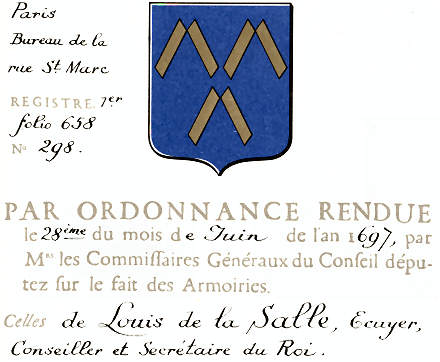 Paris
Bureau de la
rue St Marc
REGISTRE 1er
folio 658
No 298.
PAR ORDONNANCE RENDUE
le 28ième du mois de Juin de l'an 1697, par
Mrs les Commiſſaires Généraux du Conſeil dépu-
tez ſur le fait des Armoiries.
Celles de Louis de la Salle, Ecuyer,
Conseiller et Secrétaire du Roi.